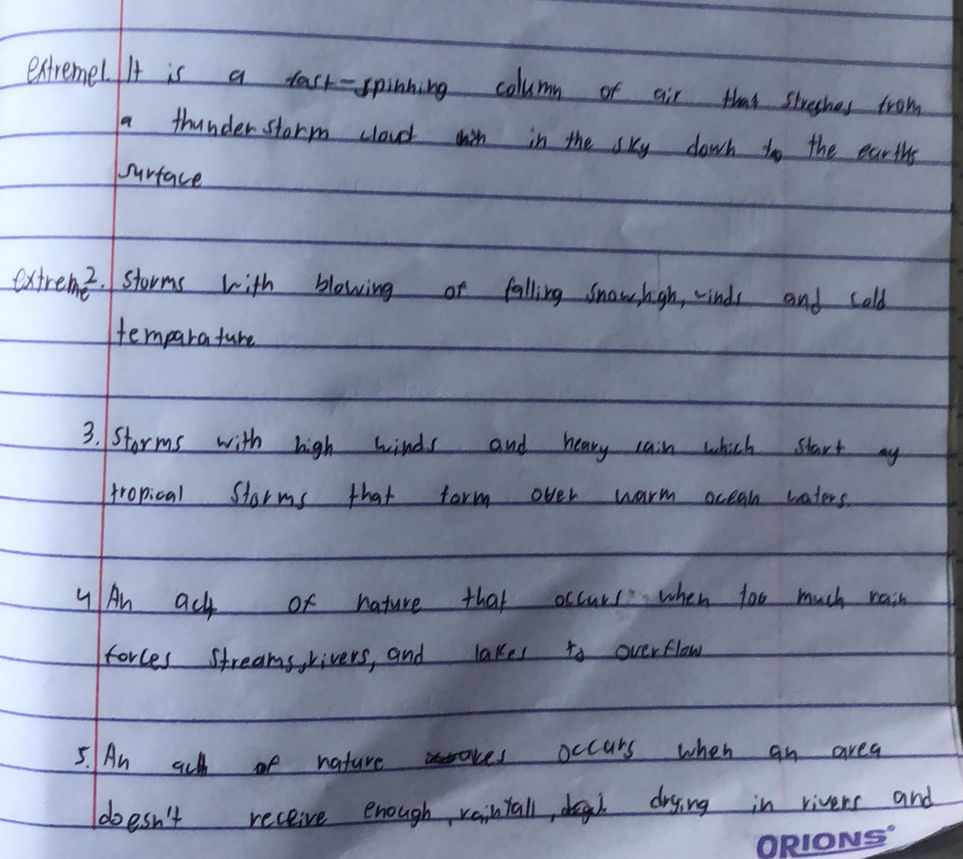 extreme1. It is a fast-spinning column of air that streches from
a thunder storm cloud in the sky down to the earths
surface
extreme2. Storms with blowing or falling snow,high, winds and cold
temparature
3. Storms with high winds and heavy rain which start ay
tropical storms that form over warm ocean waters.
4 An act of nature that occurs when too much rain
forces streams,rivers, and lakes to overflow
5. An act of nature occurs when an area
doesn't receive enough, rainfall, drying in rivers and
ORIONS